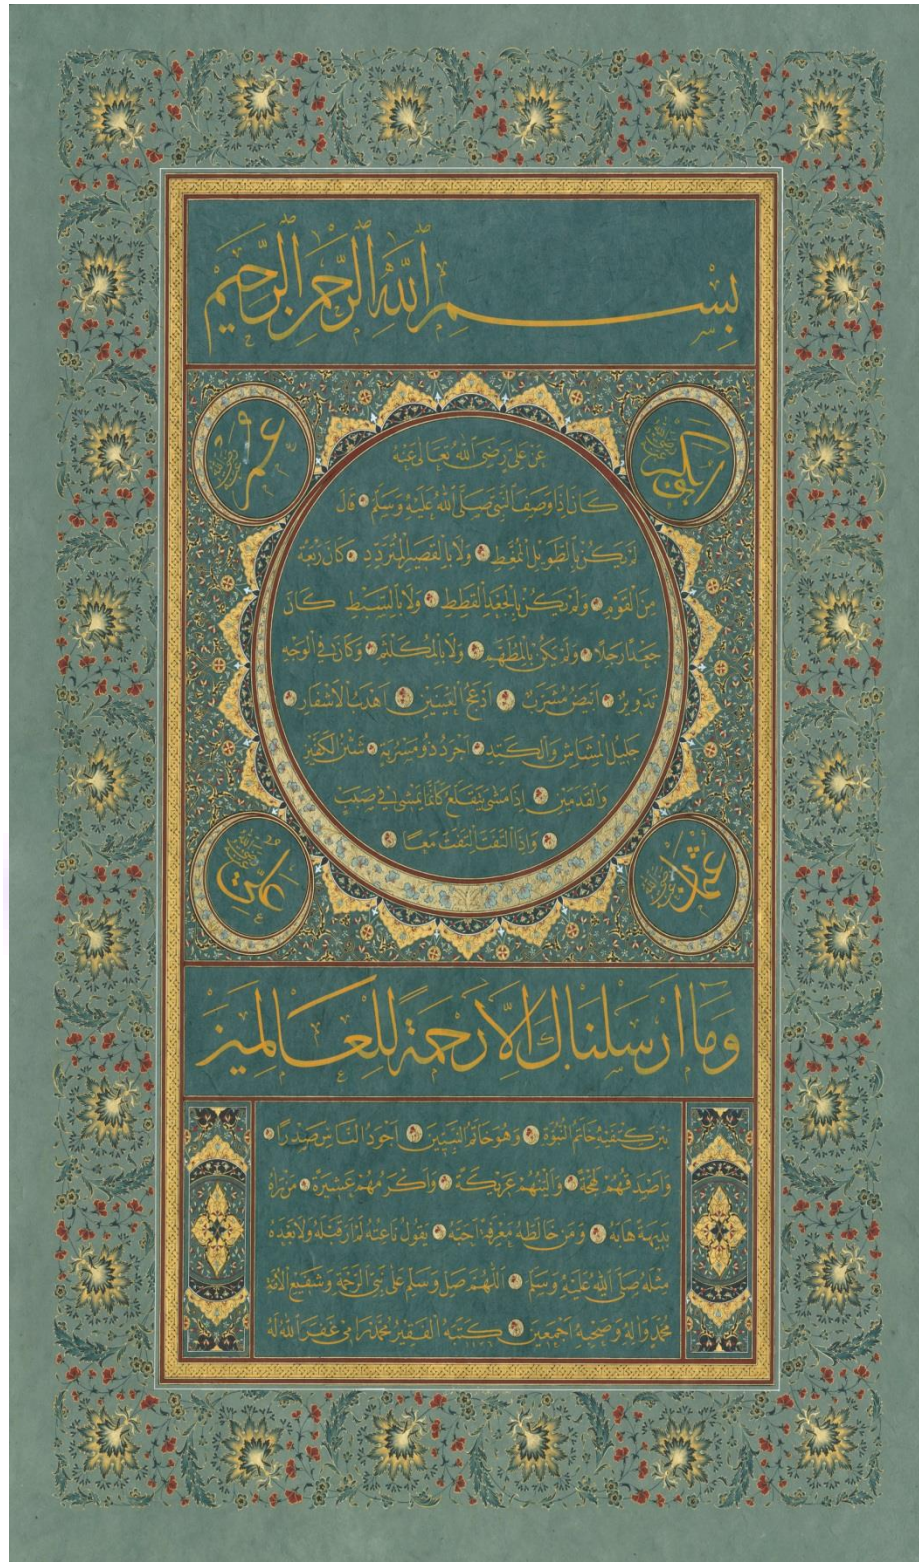 بِسْمِ اللَّهِ الرَّحْمٰنِ الرَّحِيمِ
أبو بكر رضي الله عنه
عمر رضي الله عنه
عَنْ عَلِيٍّ رَضِيَ اللَّهُ تَعَالَى عَنْهُ
كَانَ إِذَا وَصَفَ النَّبِيَّ صَلَّى اللَّهُ عَلَيْهِ وَسَلَّمَ قَالَ
لَمْ يَكُنْ بِالطَّوِيلِ الْمُمَّغِطِ وَلَا بِالْقَصِيرِ الْمُتَرَدِّدِ كَانَ رَبْعَةً
مِنَ الْقَوْمِ وَلَمْ يَكُنْ بِالْجَعْدِ الْقَطِطِ وَلَا بِالسَّبِطِ كَانَ
جَعْدًا رَجِلًا وَلَمْ يَكُنْ بِالْمُطَهَّمِ وَلَا بِالْمُكَلْثَمِ وَكَانَ فِي الْوَجْهِ
تَدْوِيرٌ أَبْيَضُ مُشْرَبٌ أَدْعَجُ الْعَيْنَيْنِ أَهْدَبُ الْأَشْفَارِ
جَلِيلُ الْمُشَاشِ وَالْكَتَدِ أَجْرَدُ ذُو مَسْرُبَةٍ شَثْنُ الْكَفَّيْنِ
وَالْقَدَمَيْنِ إِذَا مَشَى يَتَقَلَّعُ كَأَنَّمَا يَمْشِي فِي صَبَبٍ
وَإِذَا الْتَفَتَ الْتَفَتَ مَعًا
عثمان رضي الله عنه
علي رضي الله عنه
وَمَا أَرْسَلْنَاكَ إِلَّا رَحْمَةً لِلْعَالَمِينَ
بَيْنَ كَتِفَيْهِ خَاتَمُ النُّبُوَّةِ وَهُوَ خَاتَمُ النَّبِيِّينَ أَجْوَدُ النَّاسِ صَدْرًا
وَأَصْدَقُهُمْ لَهْجَةً وَأَلْيَنُهُمْ عَرِيكَةً وَأَكْرَمُهُمْ عَشِيرَةً مَنْ رَآهُ
بَدِيهَةً هَابَهُ وَمَنْ خَالَطَهُ مَعْرِفَةً أَحَبَّهُ يَقُولُ نَاعِتُهُ لَمْ أَرَ قَبْلَهُ وَلَا بَعْدَهُ
مِثْلَهُ صَلَّى اللَّهُ عَلَيْهِ وَسَلَّمَ اللَّهُمَّ صَلِّ وَسَلِّمْ عَلَى نَبِيِّ الرَّحْمَةِ وَشَفِيعِ الْأُمَّةِ
مُحَمَّدٍ وَآلِهِ وَصَحْبِهِ أَجْمَعِينَ كَتَبَهُ الْفَقِيرُ مُحَمَّد غَفَرَ اللَّهُ لَهُ